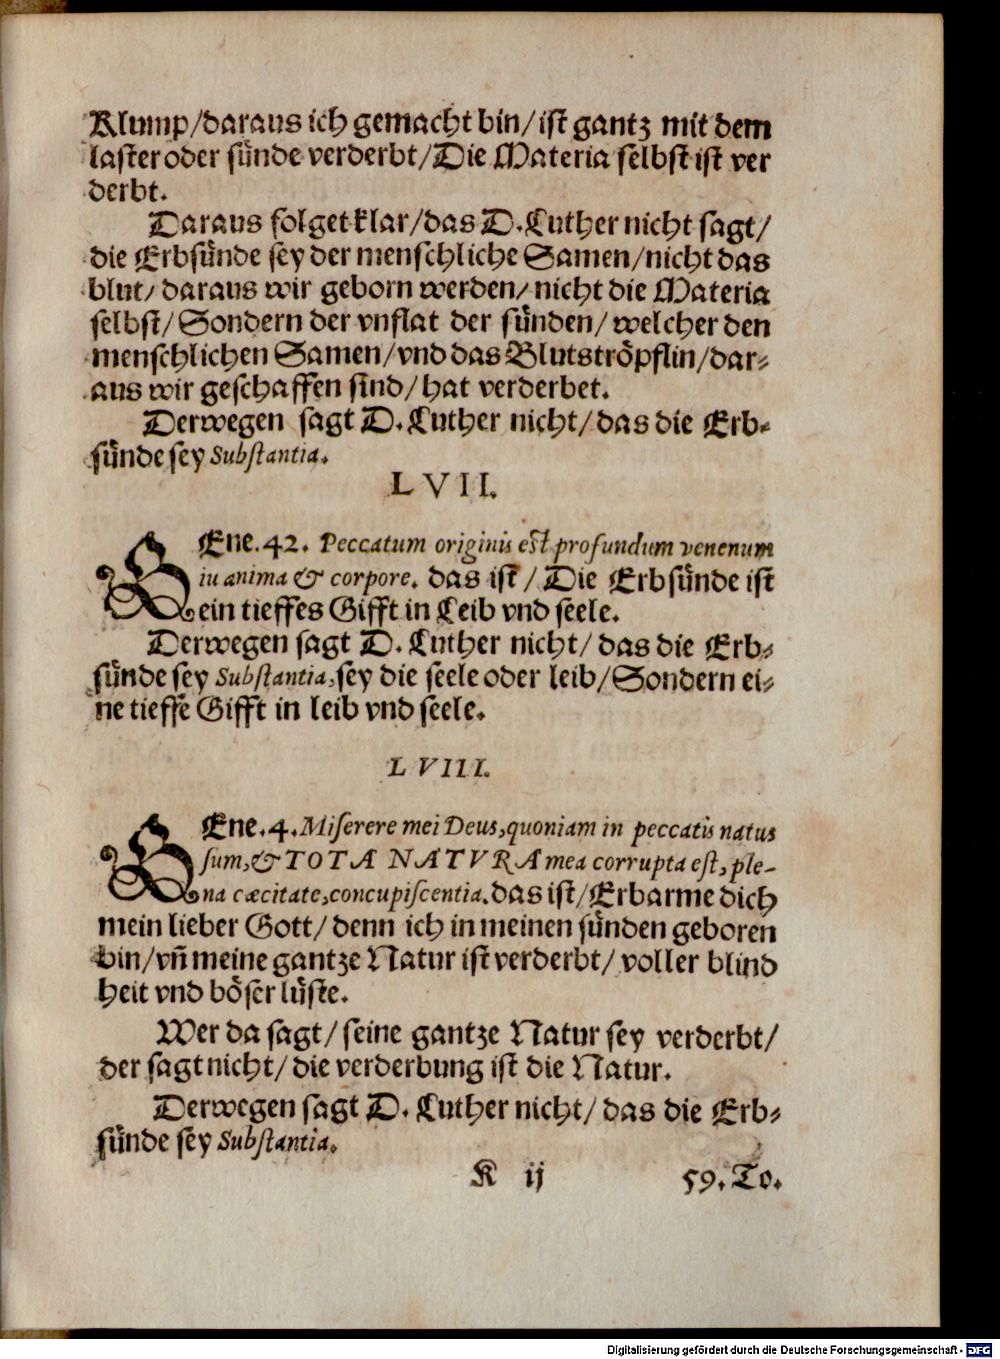 Klump/daraus ich gemacht bin/ist gantz mit dem
laster oder sünde verderbt/Die Materia selbst ist ver
derbt.
Daraus folget klar/das D.Luther nicht sagt/
die Erbsünde sey der menschliche Samen/nicht das
blut/daraus wir geborn werden/nicht die Materia
selbst/Sondern der vnflat der sünden/welcher den
menschlichen Samen/vnd das Blutströpflin/dar-
aus wir geschaffen sind/hat verderbet.
Derwegen sagt D.Luther nicht/das die Erb-
sünde sey Substantia.
LVII.
GEne.42. Peccatum originis est profundum venenum
iu anima & corpore. das ist/Die Erbsünde ist
ein tieffes Gifft in Leib vnd seele.
Derwegen sagt D. Luther nicht/das die Erb-
sünde sey Substantia,sey die seele oder leib/Sondern ei-
ne tieffe Gifft in leib vnd seele.
LVIII.
GEne.4.Miserere mei Deus,quoniam in peccatis natus
sum,& TOTA NATVRA mea corrupta est, ple-
na cæcitate,concupiscentia.das ist/Erbarme dich
mein lieber Gott/denn ich in meinen sünden geboren
bin/vñ meine gantze Natur ist verderbt/voller blind
heit vnd böser lüste.
Wer da sagt/seine gantze Natur sey verderbt/
der sagt nicht/die verderbung ist die Natur.
Derwegen sagt D. Luther nicht/das die Erb-
sünde sey Substantia.
K ij 59.To.
Digitalisierung gefördert durch die Deutsche Forschungsgemeinschaft - DFG